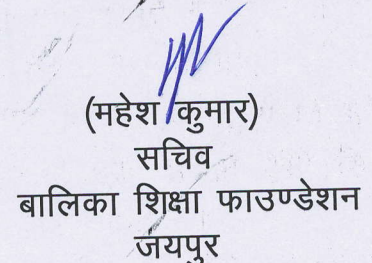 (महेश कुमार)
सचिव
बालिका शिक्षा फाउण्डेशन
जयपुर